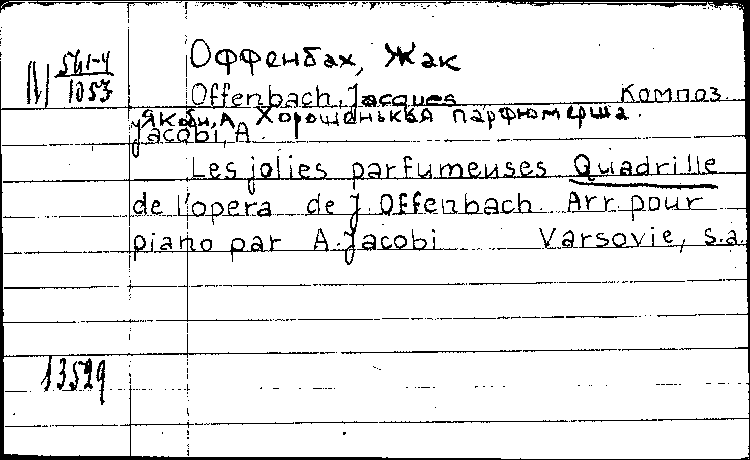 Оффенбах, Жак
М 541-4
1053
Offenbach, Jacques Композ.
Якоби, А. Хорошенькая парфюмерша.
Jacobi, A.
Les jolies parfumeuses Quadrille
de l'opera de J. Offenbach. Arr. pour
piano par A. Jacobi Varsovie, s.a.
13529